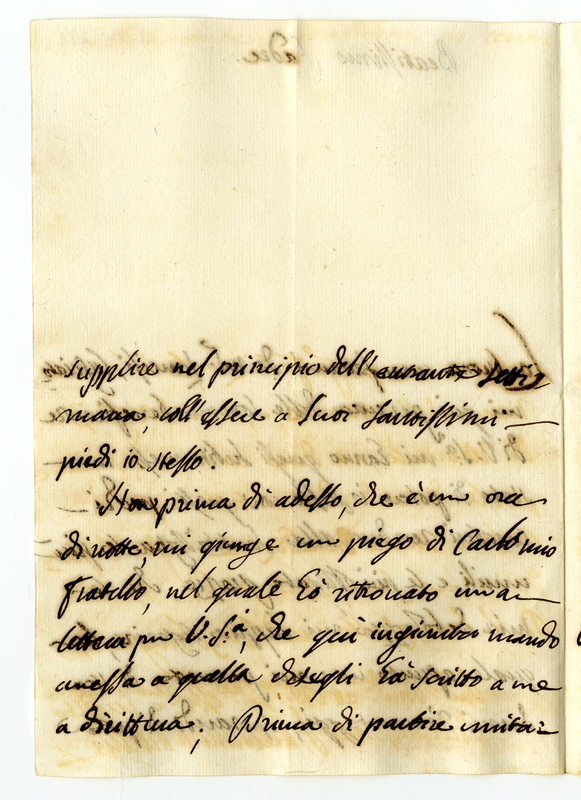 supplire nel principio dell' entrante setti
mana, coll'essere a Suoi Santissimi
piedi io stesso.
Non prima di adesso, che è un ora
di notte, mi giunge un piego di Carlo mio
fratello, nel quale hò ritrovato una
lettera per V. S.tà, che quì ingiunta mando
annessa a quella, ch'egli hà scritto a me
a dirittura; Prima di partire unita=